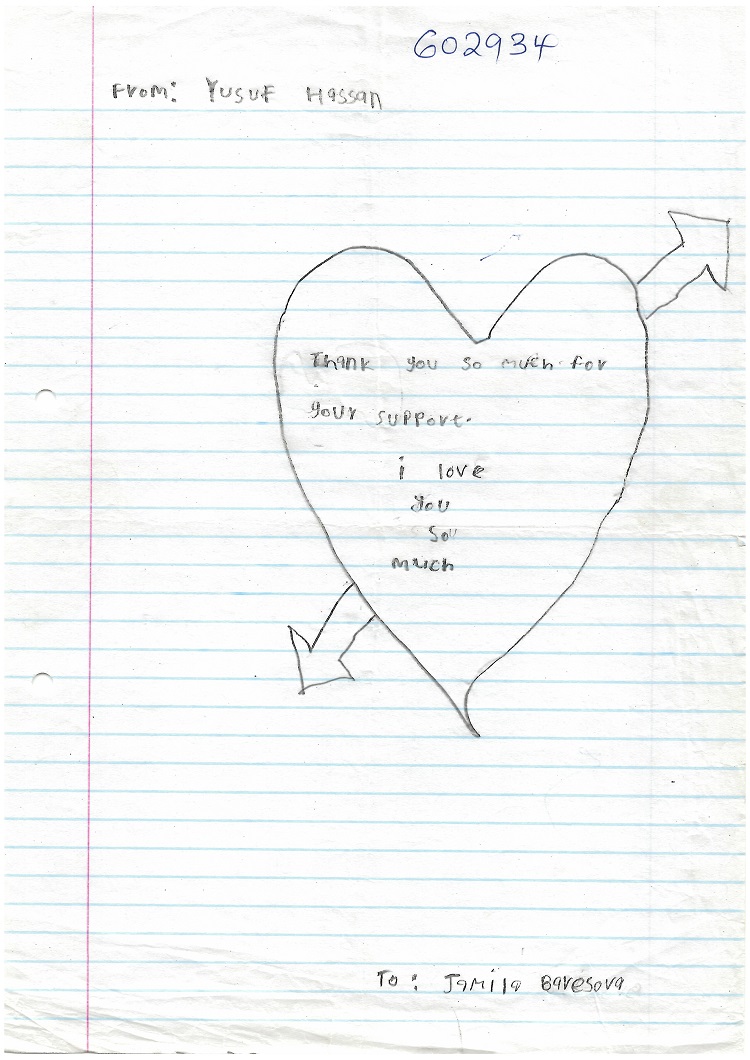 602934
From: Yusuf Hassan
Thank you so much for
your support.
i love
you
so
much
To: Jamila Baresova